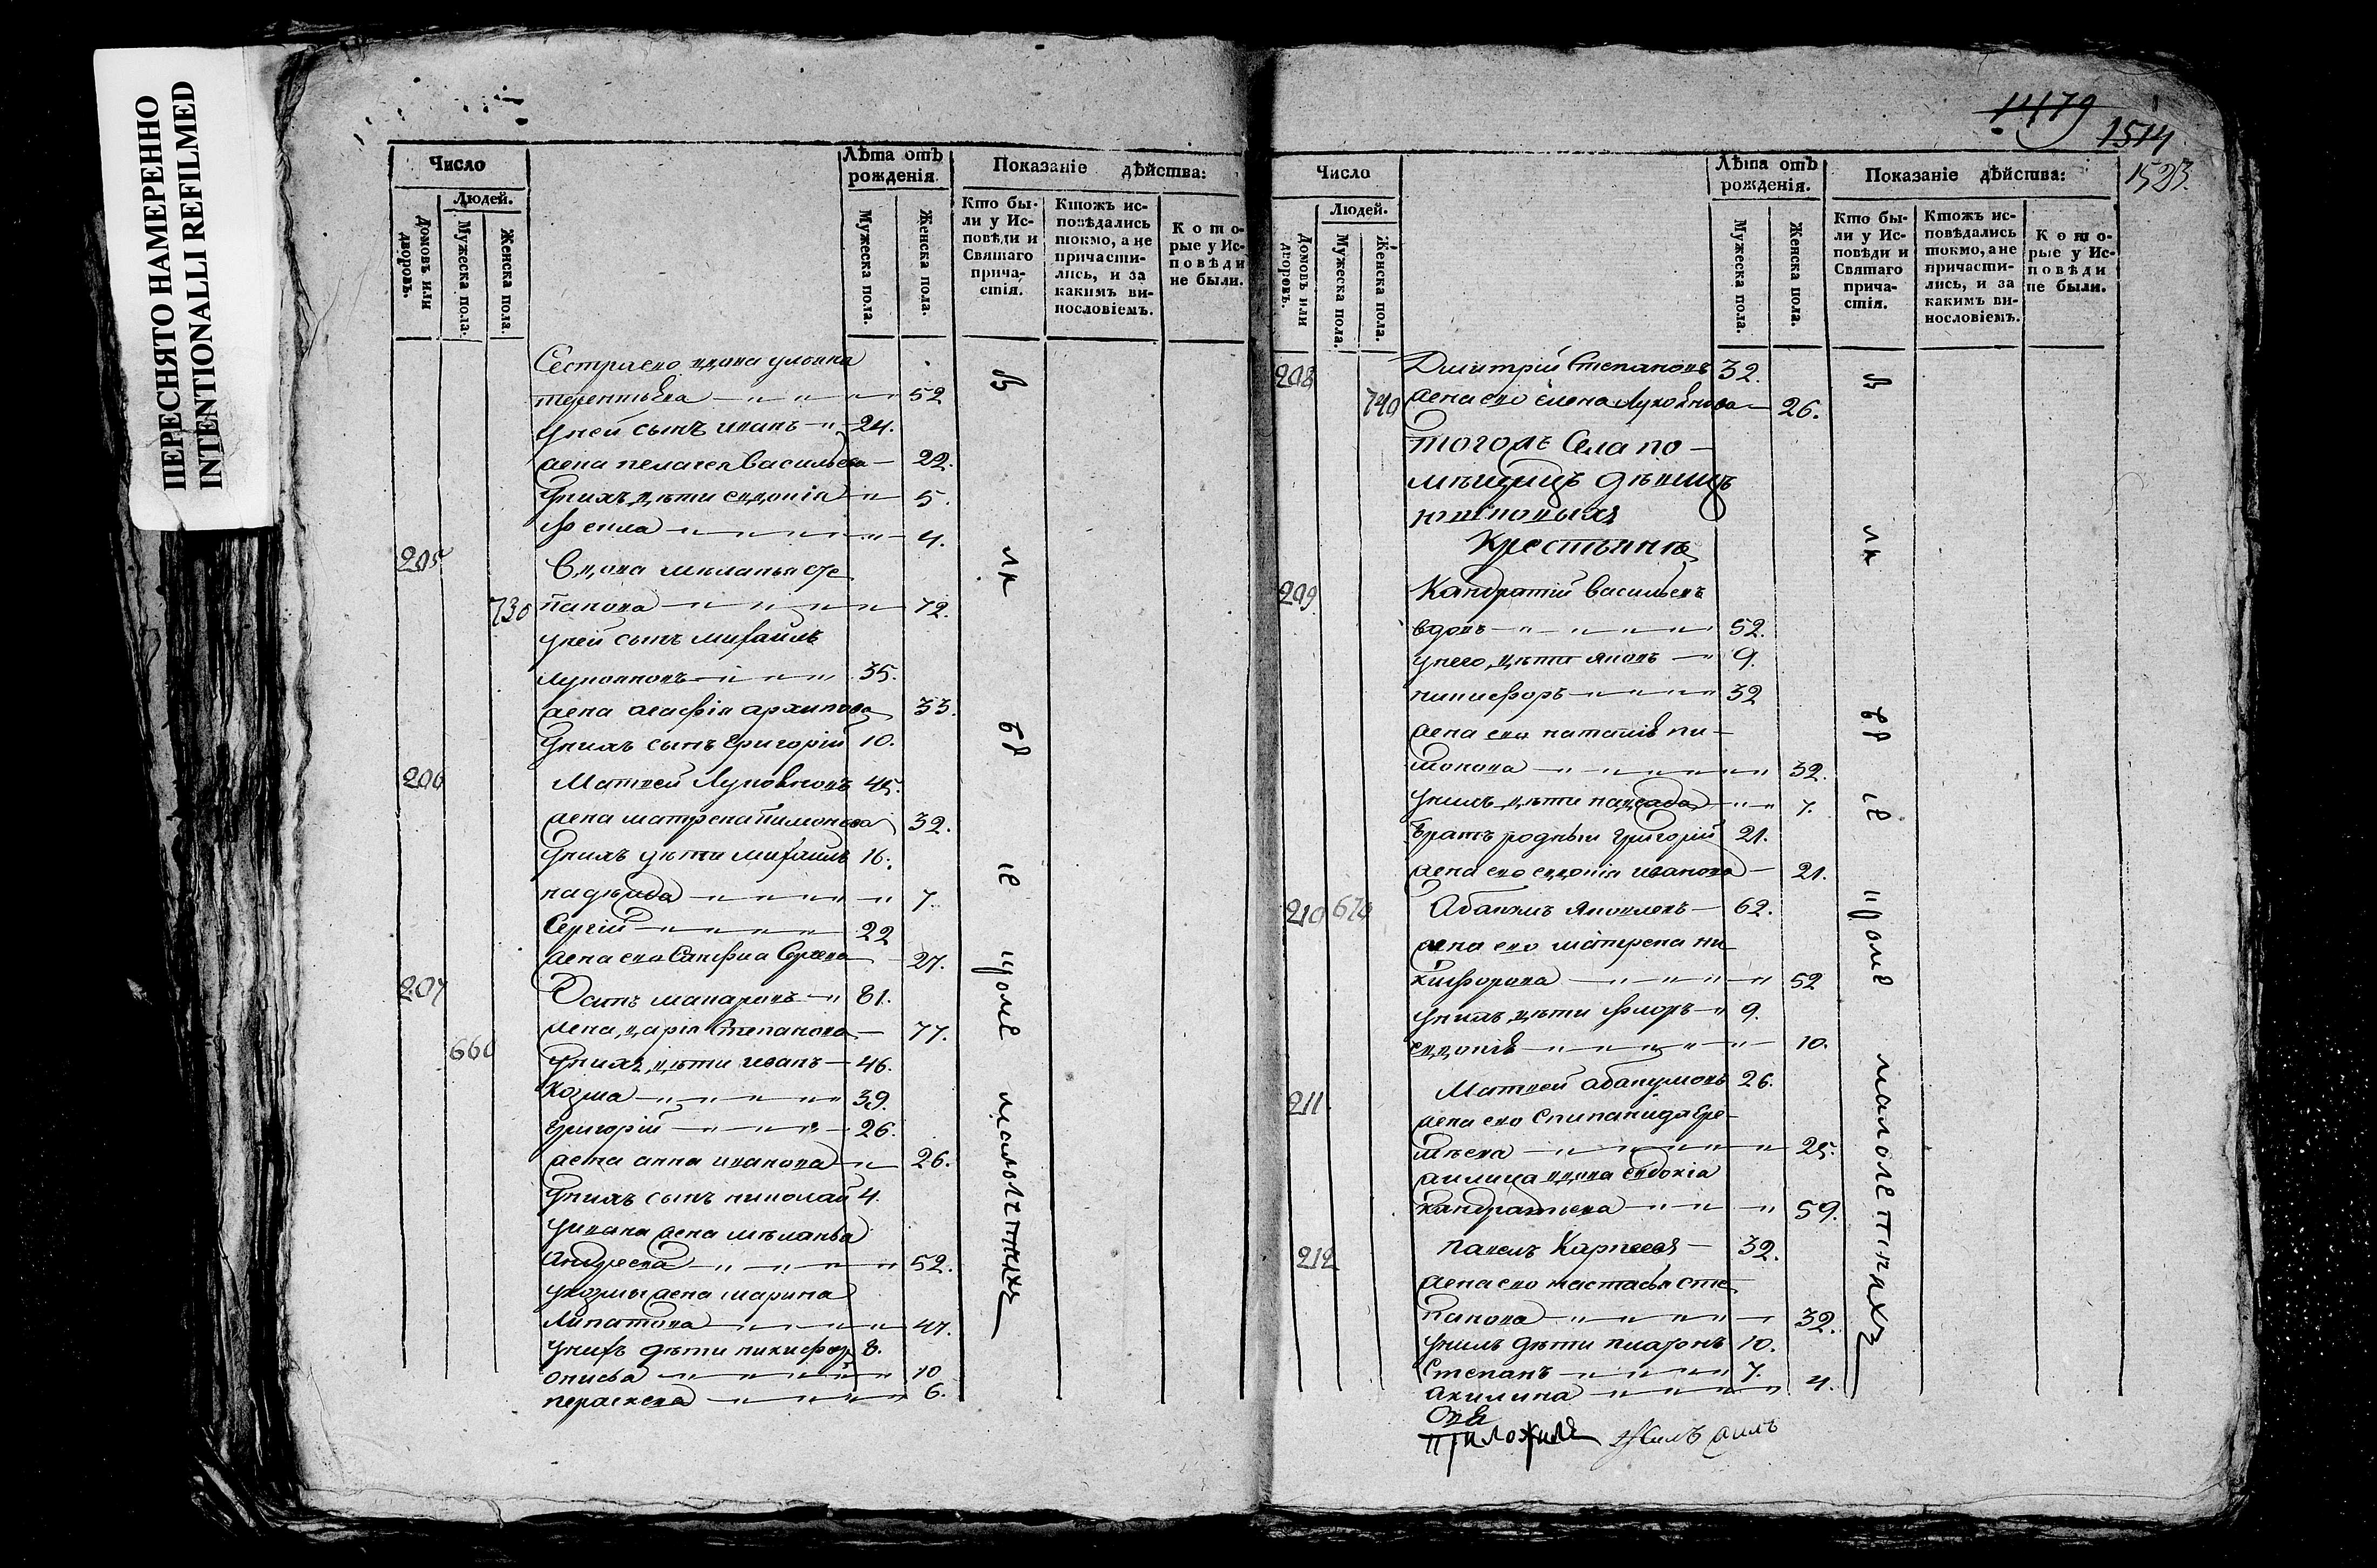 ПЕРЕСНЯТО НАМЕРЕННО
INTENTIONALLI REFILMED
Число
Людей.
Домовъ или дворовъ.
Мужеска пола.
Женска пола.
Лѣта отъ рожденія.
Мужеска пола.
Женска пола.
Показаніе дѣйства:
Кто были у Исповѣди и Святаго причастія.
Ктожъ исповѣдались токмо, а не причастились, и за какимъ винословіемъ.
Которые у Исповѣди не были.
Сестра ево вдова
терентьева 52
у ней сынъ иванъ 24.
жена пелагея Васильева 22.
у нихъ дѣти евдокія 5.
Фекла 4.
205 Вдова меланья сте
730 панова 72.
у ней сынъ михаилъ
лукояновъ 35.
жена агафія архипова 33.
у нихъ сынъ григорій 10.
206 Матвей Лукояновъ 45.
жена матрена пимонова 32.
у нихъ дѣти михаилъ 16.
надежда 7.
Сергій 22
жена ево 27.
207 макаровъ 81.
жена дарія Степанова 77.
660 у нихъ дѣти иванъ 46.
Козма 39.
григорій 26.
жена анна иванова 26.
у нихъ сынъ николай 4.
у ивана жена меланья
Андреева 52.
у козмы жена марина
Липатова 47.
у нихъ дѣти никифор 8.
онисья 10
пераскева 6.
1479
1514
1523.
Число
Людей.
Домовъ или дворовъ.
Мужеска пола.
Женска пола.
Лѣта отъ рожденія.
Мужеска пола.
Женска пола.
Показаніе дѣйства:
Кто были у Исповѣди и Святаго причастія.
Ктожъ исповѣдались токмо, а не причастились, и за какимъ винословіемъ.
Которые у Исповѣди не были.
208 Дмитрій Степановъ 32.
740 жена ево елена Лукоянова 26.
тогожъ Села по-
мѣщицъ дѣвицъ
Крестьяне
209 Кандратій Васильевъ
вдовъ 52.
у него дѣти яковъ 9.
никифоръ 32
жена ево наталія пи-
монова 32.
у нихъ дѣти надежда 7.
Братъ родный григорій 21.
жена ево евдокія иванова 21.
210 670 Абакумъ яковлевъ 62.
жена ево матрена ни
кифорова 52
у нихъ дѣти флоръ 9.
евдокія 10.
211 Матвей абакумовъ 26.
жена ево Епиланида Ере-
мѣева 25.
вдова евдокіа
кандратьева 59.
212 павелъ Карпеевъ 32.
жена ево настасья сте
панова 32.
у нихъ дѣти 10.
Степанъ 7.
акилина 4.
приложилъ